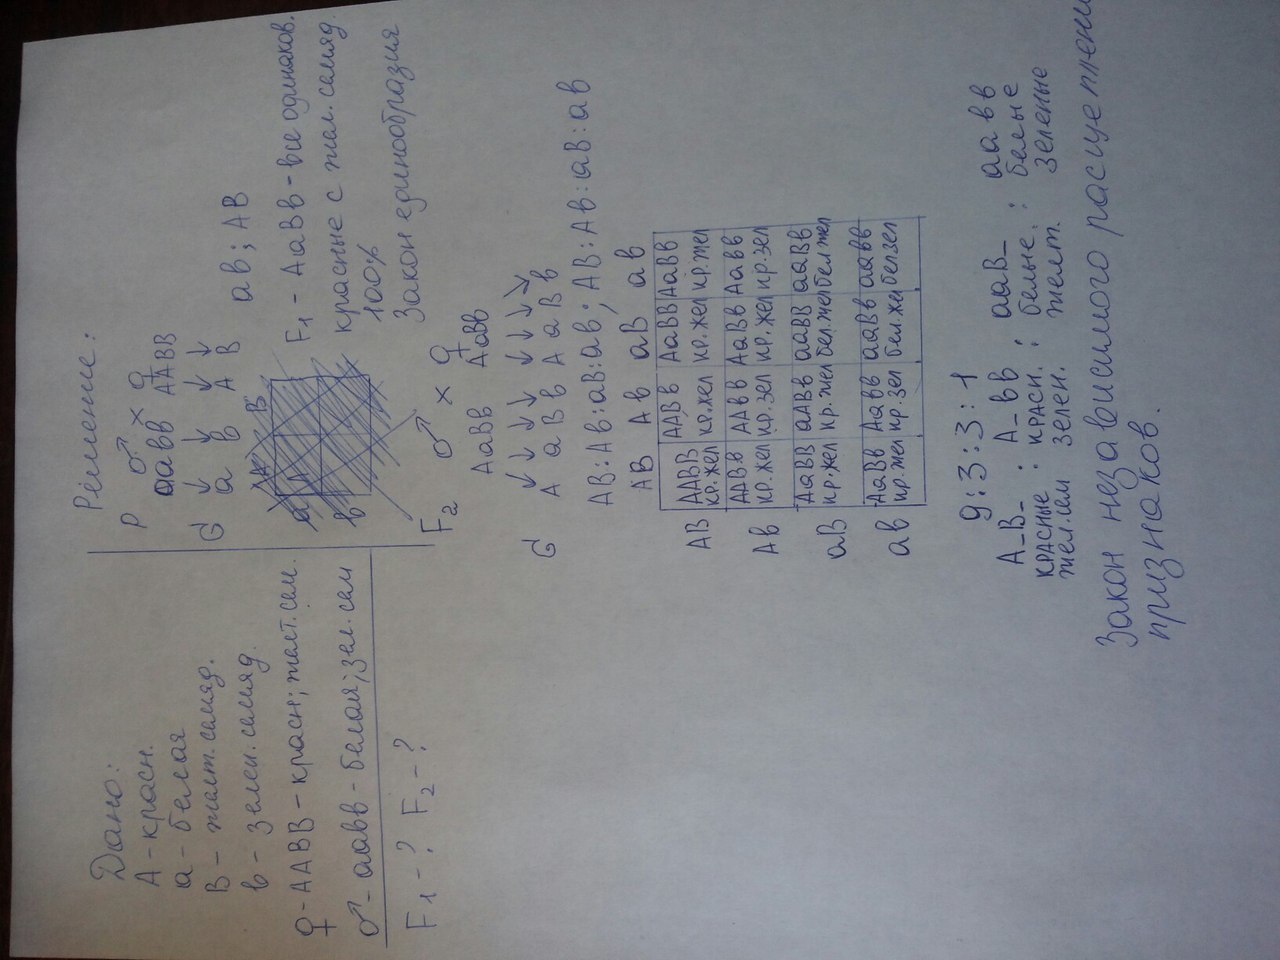 Дано:
А - красн.
а - белая
В - желт. семяд.
в - зелен. семяд.
♀ - ААВВ - красн; желт. сем.
♂ - аавв - белая; зел. сем
F1 - ? F2 - ?
Решение:
Р ♂ аавв × ♀ ААВВ
G а в А В ав ; АВ
F1 - АаВв - все одинаков.
красные с жел. семяд.
100%
Закон единообразия
F2 ♂ АаВВ × ♀ АаВВ
G А а В в А а В в
АВ : Ав : аВ : ав ; АВ : Ав : аВ : ав
АВ Ав аВ ав
АВ ААВВ ААВв АаВВ АаВв
кр. жел кр. жел кр. жел кр. жел
Ав ААВв ААвв АаВв Аавв
кр. жел кр. зел кр. жел кр. зел
аВ АаВВ аАВв ааВВ ааВв
кр. жел кр. жел бел. жел бел жел
ав АаВв Аавв ааВв аавв
кр. жел кр. зел бел. жел бел зел
9 : 3 : 3 : 1
А_В_ : А_вв : ааВ_ : аавв
красные : красн. : белые : белые
жел. сем зелен. желт. зеленые
Закон независимого расщепления
признаков.